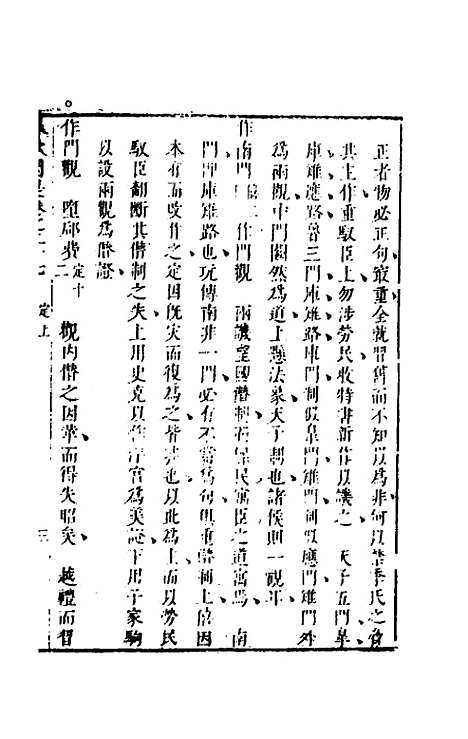 正者物必正句最重全就習舊而不知以爲非何以禁季氏之脅
其主作重馭臣上勿涉勞民收特書新作以譏之 天子五門皋
庫雉應路魯三門庫雉路庫門制似皐門雉門制似應門雉門外
爲兩觀中門闕然爲道上懸法象天子制也諸侯則一觀平
作南門 作門觀 兩譏望國僭制不 民 臣之道寓焉 南
門非庫雉路也玩傳南非一門必有不當爲句俱重僭制上僖因
本有而改作之定因旣灾而復爲之皆 也以此爲上而以勞民
馭臣翻斷其僭制之失上用史克以作泮宮爲美証下用子家駒
以設兩觀爲僭證
作門觀 墮郈費定十二 觀內僭之因革而得失昭矣 越禮而習
定上 三